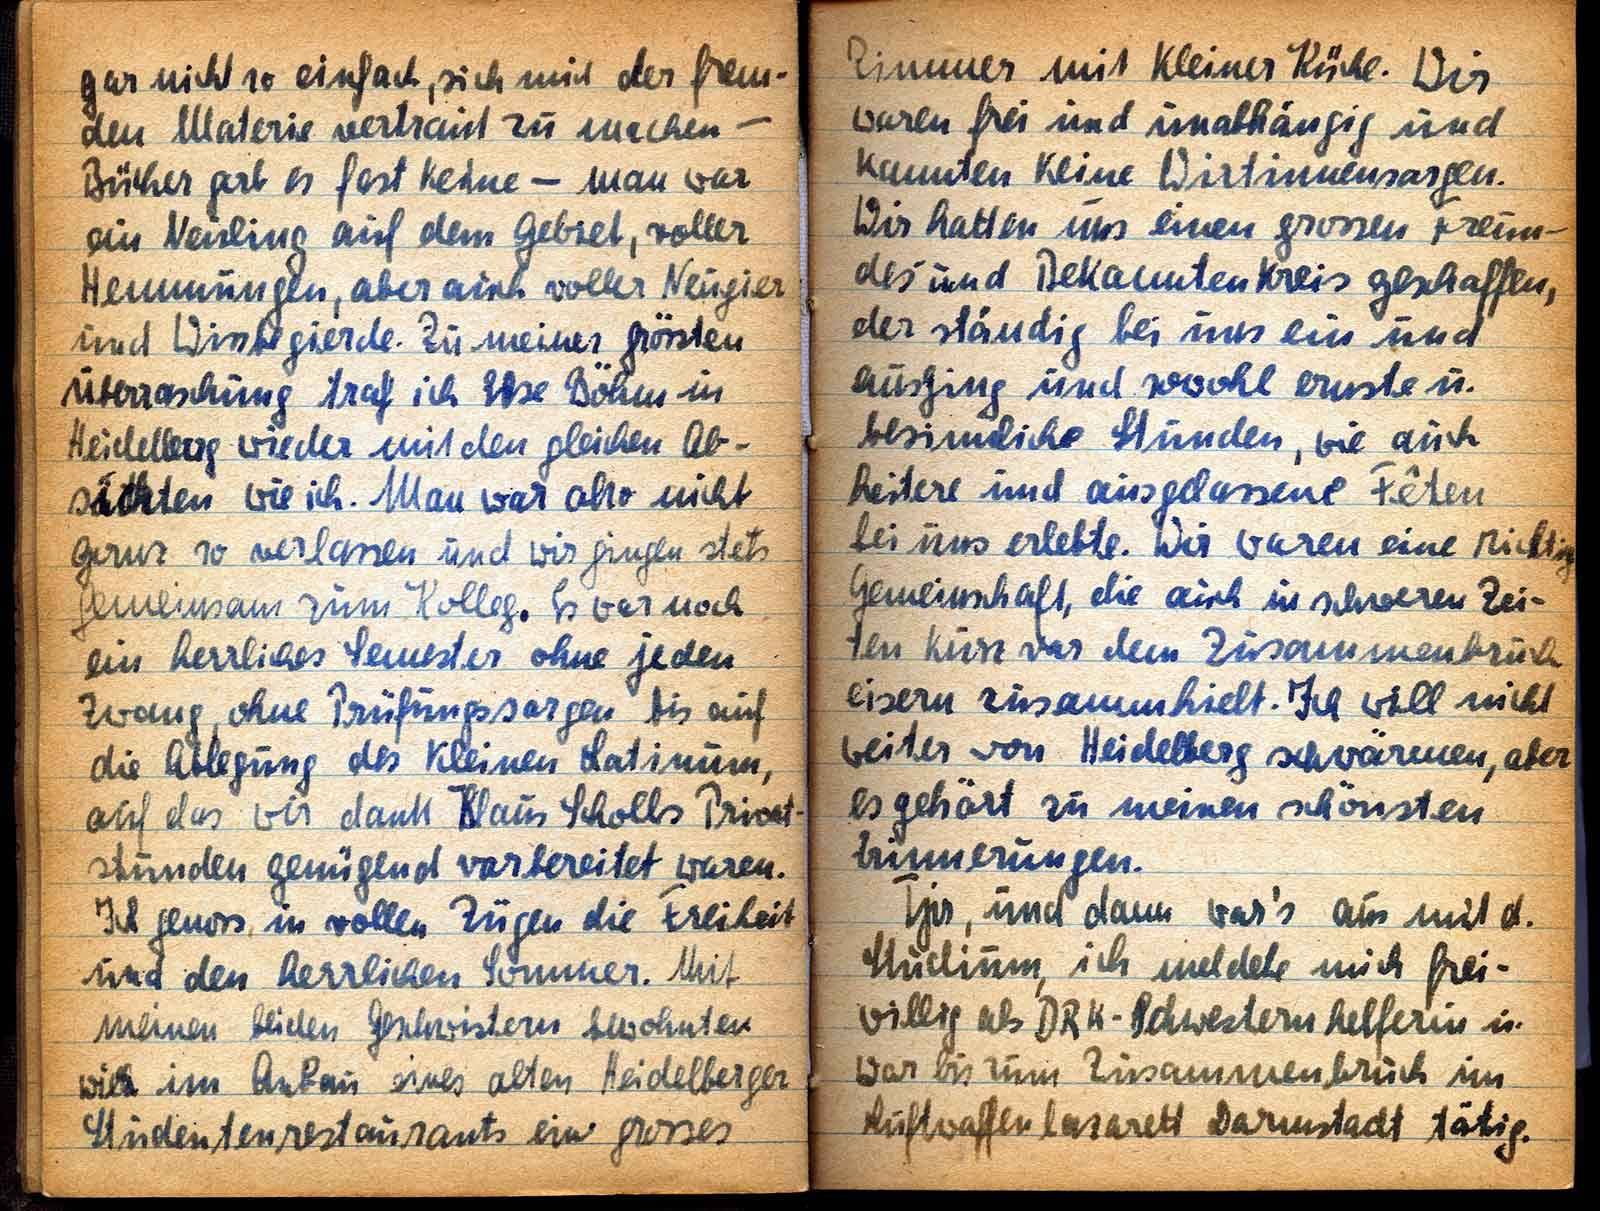 gar nicht so einfach, sich mit der frem-
den Materie vertraut zu machen —
Bücher gab es fast keine — man war
ein Neuling auf dem Gebiet, voller
Hemmungen, aber auch voller Neugier
und Wissbegierde. Zu meiner grössten
Überraschung traf ich Ilse Böhm in
Heidelberg wieder mit den gleichen Ab-
sichten wie ich. Man war also nicht
ganz so verlassen und wir gingen stets
gemeinsam zum Kolleg. Es war noch
ein herrliches Semester ohne jeden
Zwang, ohne Prüfungssorgen bis auf
die Ablegung des kleinen Latinum,
auf das wir dank Klaus Scholls Privat-
stunden genügend vorbereitet waren.
Ich genoss in vollen Zügen die Freiheit
und den herrlichen Sommer. Mit
meinen beiden Geschwistern bewohnten
wir im Anbau eines alten Heidelberger
Studentenrestaurants ein grosses
Zimmer mit kleiner Küche. Wir
waren frei und unabhängig und
kannten keine Wirtinnensorgen.
Wir hatten uns einen grossen Freun-
des und Bekanntenkreis geschaffen,
der ständig bei uns ein und
ausging und sowohl ernste u.
besinnliche Stunden, wie auch
heitere und ausgelassene Fêten
bei uns erlebte. Wir waren eine richtige
Gemeinschaft, die auch in schweren Zei-
ten kurz vor dem Zusammenbruch
eisern zusammhielt. Ich will nicht
weiter von Heidelberg schwärmen, aber
es gehört zu meinen schönsten
Erinnerungen.
Tja, und dann war's aus mit d.
Studium, ich meldete mich frei-
willig als DRK-Schwesternhelferin u.
war bis zum Zusammenbruch im
Luftwaffenlazarett Darmstadt tätig.